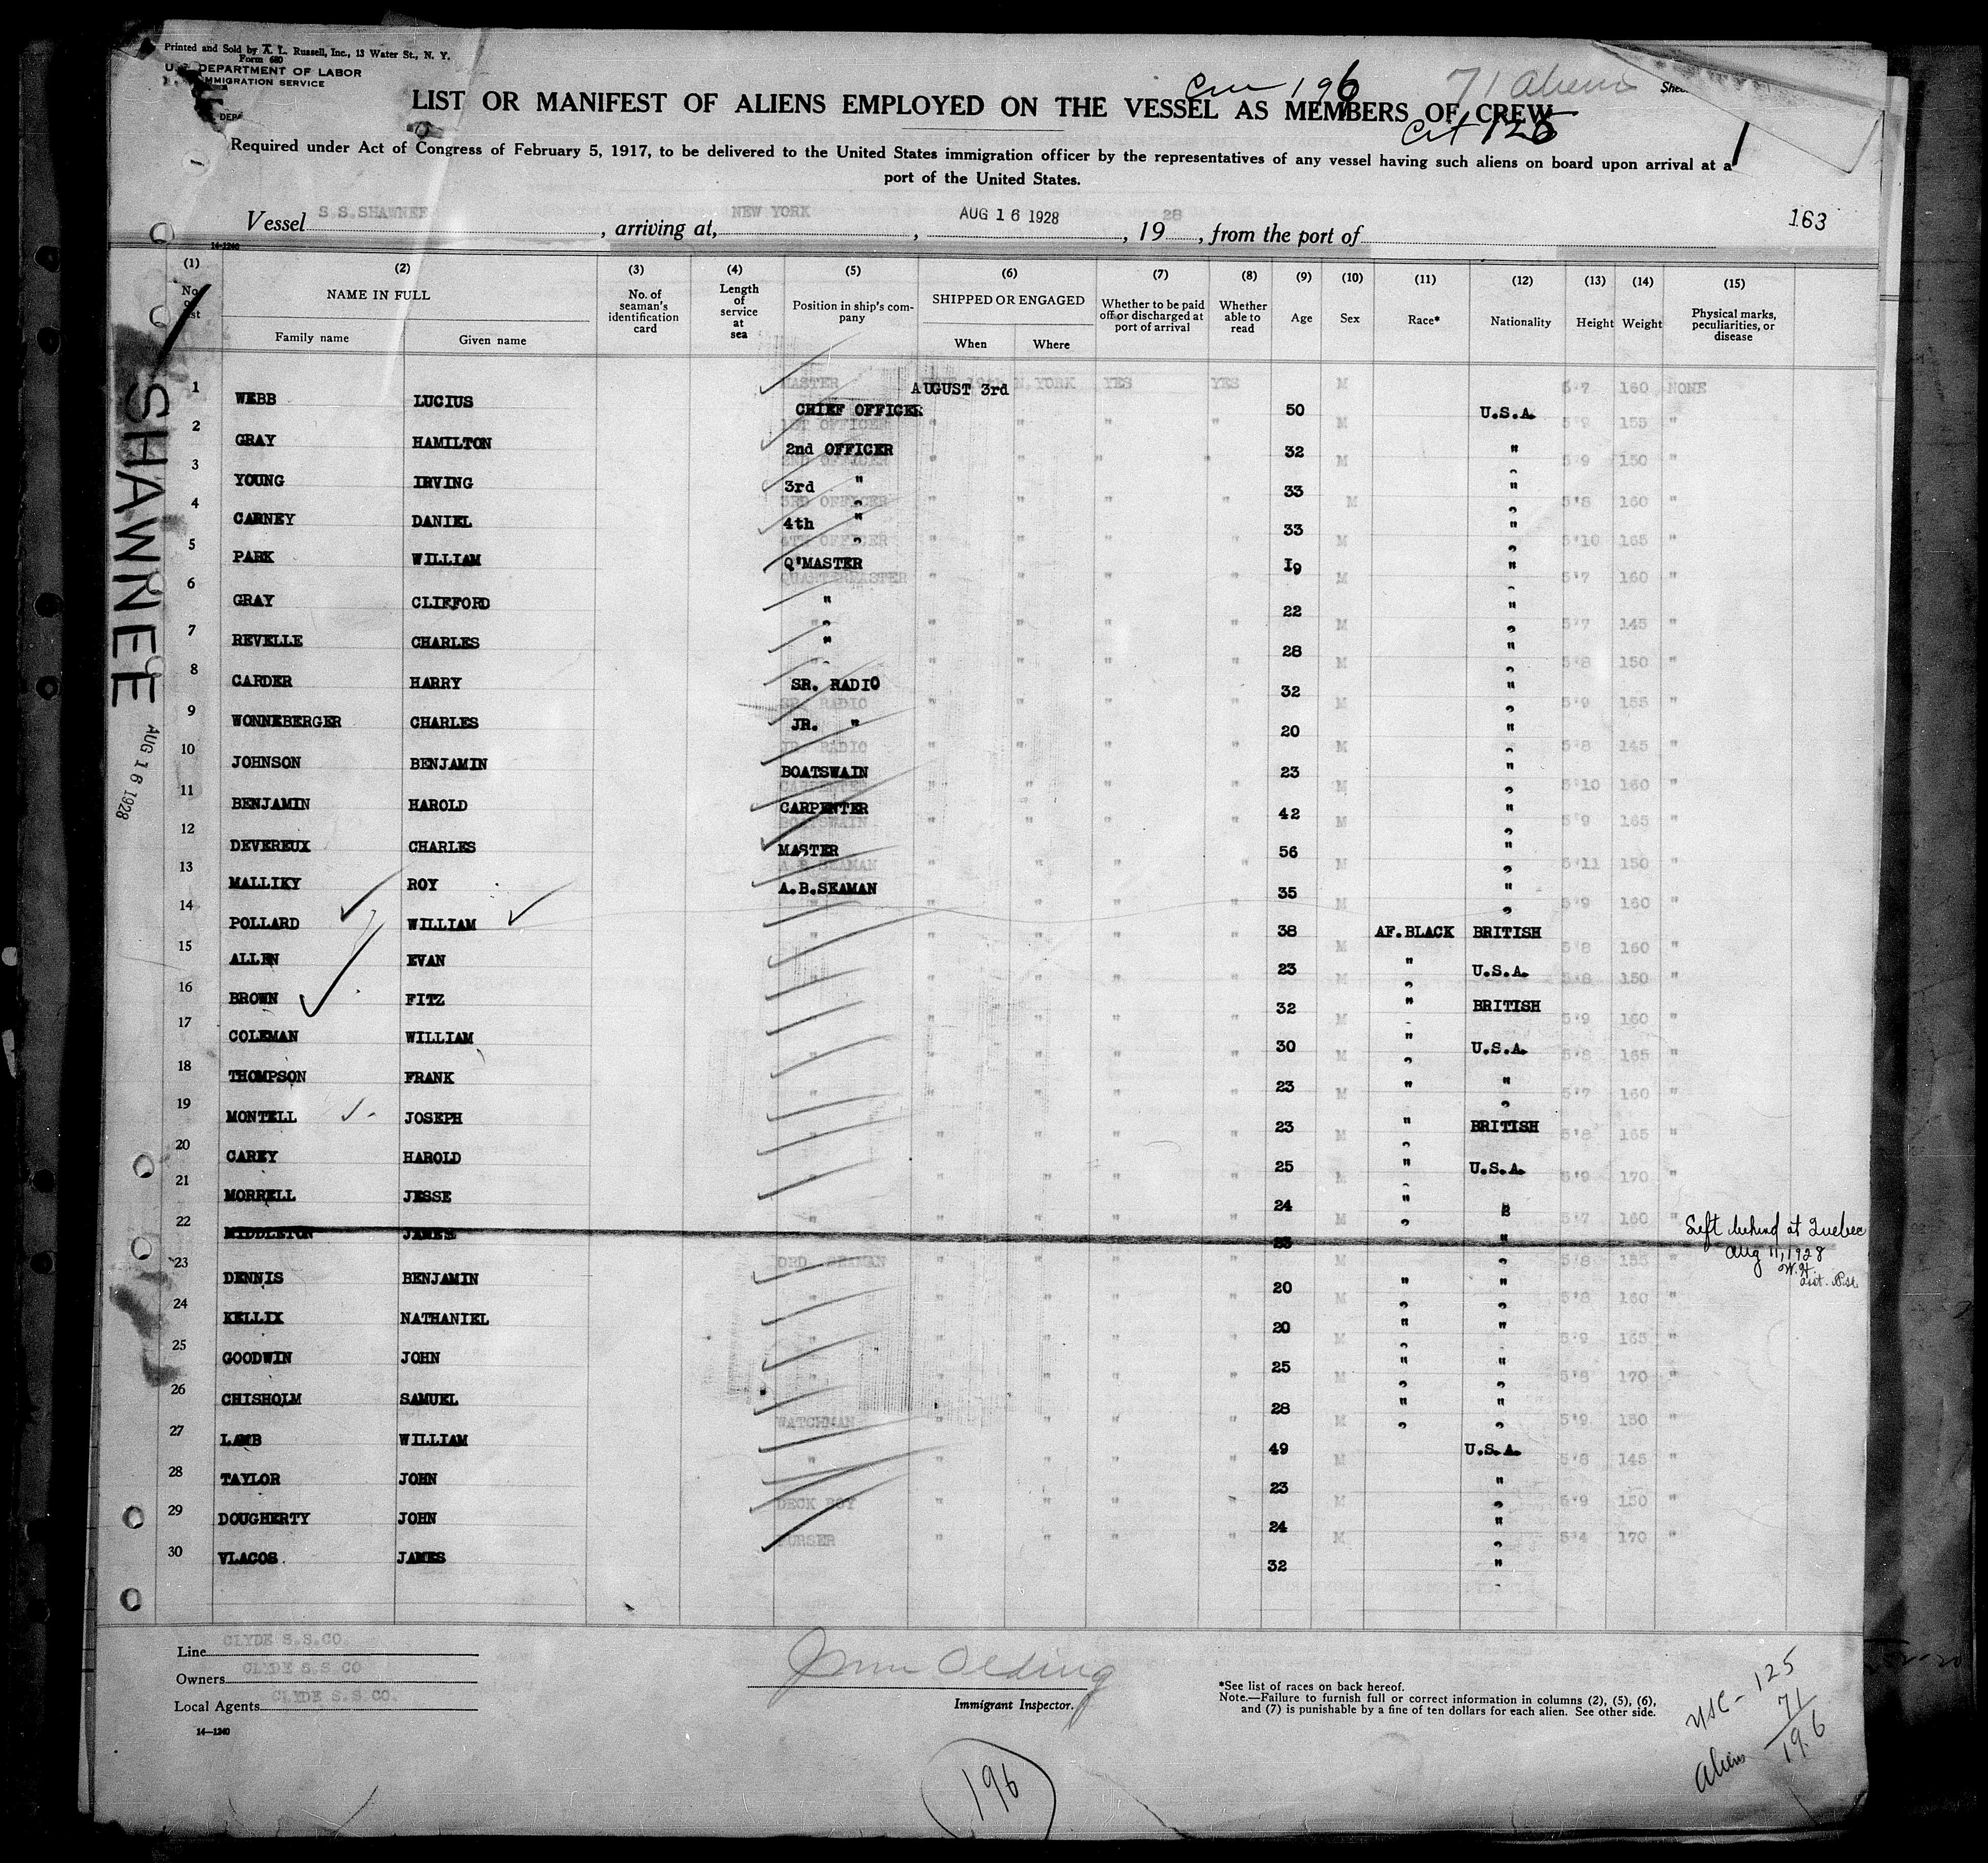 Printed and Sold by A. L. Russell, Inc., 13 Water St., N. Y.
Form 680
U. S. DEPARTMENT OF LABOR
IMMIGRATION SERVICE
Crew 196
71 Aliens
LIST OR MANIFEST OF ALIENS EMPLOYED ON THE VESSEL AS MEMBERS OF CREW
Cit 125
Required under Act of Congress of February 5, 1917, to be delivered to the United States immigration officer by the representatives of any vessel having such aliens on board upon arrival at a
port of the United States.
Vessel S S.SHAWNEE, arriving at, NEW YORK, AUG 16 1928, 19 28, from the port of
163
14-1240
(1) (2) (3) (4) (5) (6) (7) (8) (9) (10) (11) (12) (13) (14) (15)
NAME IN FULL
Family name Given name
No. of seaman's identification card
Length of service at sea
Position in ship's company
SHIPPED OR ENGAGED
When Where
Whether to be paid off or discharged at port of arrival
Whether able to read
Age Sex Race* Nationality Height Weight
Physical marks, peculiarities, or disease
SHAWNEE
AUG 16 1928
MASTER AUGUST 3rd N. YORK YES YES M 5'7 160 NONE
1 WEBB LUCIUS CHIEF OFFICER 50 U.S.A.
1ST OFFICER " " " " M 5'9 155 "
2 GRAY HAMILTON 2nd OFFICER 32 "
2ND OFFICER " " " " M 5'9 150 "
3 YOUNG IRVING 3rd " 33 "
3RD OFFICER " " " " M 5'8 160 "
4 CARNEY DANIEL 4th " 33 "
4TH OFFICER " " " " M 5'10 165 "
5 PARK WILLIAM Q'MASTER I9 "
QUARTERMASTER " " " " M 5'7 160 "
6 GRAY CLIFFORD " 22 "
" " " " " M 5'7 145 "
7 REVELLE CHARLES " 28 "
" " " " " M 5'8 150 "
8 CARDER HARRY SR. RADIO 32 "
SR. RADIO " " " " M 5'9 155 "
9 WONNEBERGER CHARLES JR. " 20 "
JR. RADIO " " " " M 5'8 145 "
10 JOHNSON BENJAMIN BOATSWAIN 23 "
CARPENTER " " " " M 5'10 160 "
11 BENJAMIN HAROLD CARPENTER 42 "
BOATSWAIN " " " " M 5'9 165 "
12 DEVEREUX CHARLES MASTER 56 "
A.B.SEAMAN " " " " M 5'11 150 "
13 MALLIKY ROY A.B.SEAMAN 35 "
" " " " " M 5'9 160 "
14 POLLARD WILLIAM 38 AF.BLACK BRITISH
" " " " " M 5'8 160 "
15 ALLEN EVAN 23 " U.S.A.
" " " " M 5'8 150 "
16 BROWN FITZ 32 " BRITISH
" " " " M 5'9 160 "
17 COLEMAN WILLIAM 30 " U.S.A.
" " " " " M 5'8 165 "
18 THOMPSON FRANK 23 " "
" " " " " M 5'7 160 "
19 MONTELL JOSEPH 23 " BRITISH
" " " " " M 5'8 165 "
20 CAREY HAROLD 25 " U.S.A.
" " " " M 5'9 170 "
21 MORRELL JESSE 24 " "
" " " " " M 5'7 160 "
22 MIDDLETON JAMES "
Left behind at Quebec
Aug 11, 1928
W.H.
ORD. SEAMAN " " " " M 5'8 155 "
23 DENNIS BENJAMIN 20 " "
" " " " " M 5'8 160 "
24 KELLIX NATHANIEL 20 " "
" " " " " M 5'9 165 "
25 GOODWIN JOHN 25 " "
" " " " " M 5'8 170 "
26 CHISHOLM SAMUEL 28 " "
WATCHMAN " " " " M 5'9 150 "
27 LAMB WILLIAM 49 U.S.A.
" " " " " M 5'8 145 "
28 TAYLOR JOHN 23 "
DECK BOY " " " " M 5'9 150 "
29 DOUGHERTY JOHN 24 "
PURSER " " " " M 5'4 170 "
30 VLACOS JAMES 32 "
Line CLYDE S.S.CO.
Owners CLYDE S.S.CO
Local Agents CLYDE S.S.CO.
14—1240
Immigrant Inspector.
*See list of races on back hereof.
Note.—Failure to furnish full or correct information in columns (2), (5), (6),
and (7) is punishable by a fine of ten dollars for each alien. See other side.
USC - 125
Aliens 71
196
196